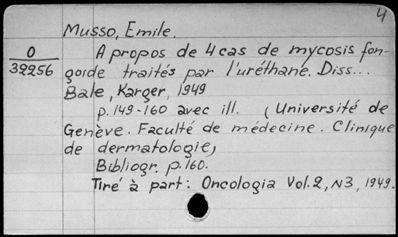 4
Musso, Emile.
0
39256
A propos de 4 cas de mycosis fon-
goïde traités par l'uréthane. Diss...
Bale, Karger, 1949
p. 149-160 avec ill. (Université de
Genève. Faculté de médecine. Clinique
de dermatologie)
Bibliogr. p. 160.
Tiré à part: Oncologia Vol. 2, N3, 1949.